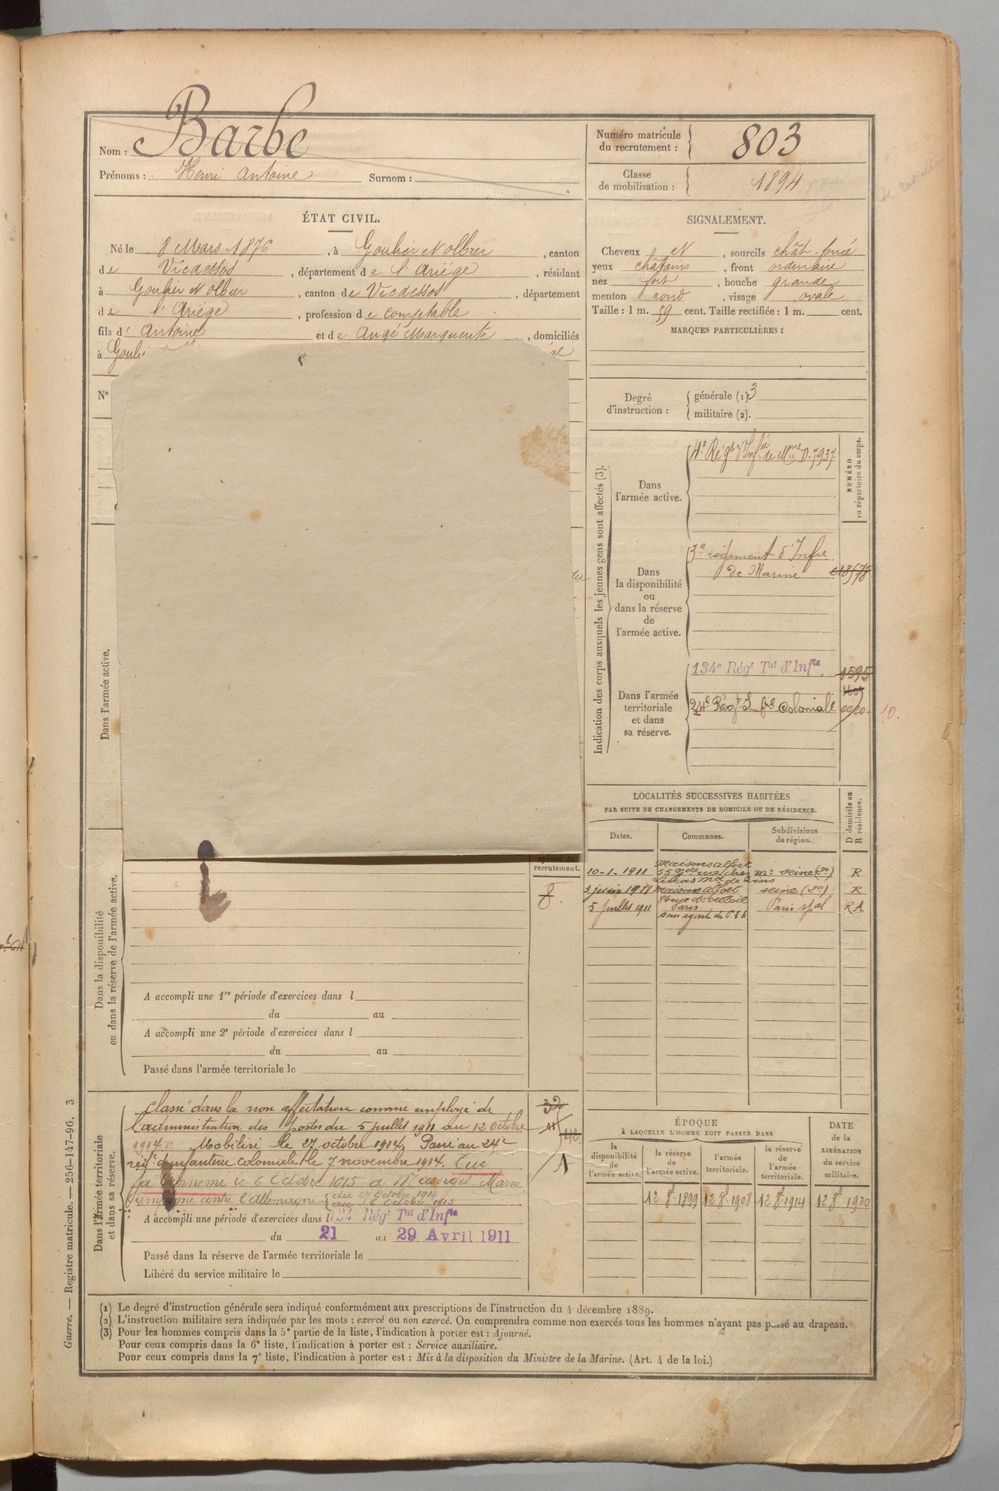 Nom : Barbe
Prénoms : Henri Antoine Surnom :
Numéro matricule
du recrutement : 803
Classe
de mobilisation : 1894
ÉTAT CIVIL.
Né le 8 Mars 1876, à Goulier et Olbier, canton
de Vicdessos, département de l'Ariège, résidant
à Goulier et Olbier, canton de Vicdessos, département
de l'Ariège, profession de comptable
fils d' Antoine et de Augé Marguerite, domiciliés
à Gouli
N°
SIGNALEMENT.
Cheveux et, sourcils chât. foncé
yeux châtains, front ordinaire
nez fort, bouche grande
menton rond, visage ovale
Taille : 1 m. 59 cent. Taille rectifiée : 1 m. cent.
MARQUES PARTICULIÈRES :
Degré
d'instruction :
générale (1). 3
militaire (2).
Indication des corps auxquels les jeunes gens sont affectés (3).
NUMÉRO
au répertoire du corps.
Dans
l'armée active.
4e Régt d'Infie de Mne 0.7937
Dans
la disponibilité
ou
dans la réserve
de
l'armée active.
3e régiment d'Infie
de Marine 18578
Dans l'armée
territoriale
et dans
sa réserve.
134e Régt Tal d'Infie 1595
24e Régt Infie Coloniale
10.
LOCALITÉS SUCCESSIVES HABITÉES
PAR SUITE DE CHANGEMENTS DE DOMICILE OU DE RÉSIDENCE.
Dates. Communes. Subdivisions
de région.
D domicile ou
R résidence.
10-1-1911 Maisons alfort seine R
1911 Maisons alfort seine R
5 juillet 1911 Paris Paris RA
Dans l'armée active.
recrutement.
Dans la disponibilité
ou dans la réserve de l'armée active.
A accompli une 1re période d'exercices dans l
du au
A accompli une 2e période d'exercices dans l
du au
Passé dans l'armée territoriale le
Dans l'armée territoriale
et dans sa réserve.
Classé dans la non affectation comme employé de
l'administration des postes du 5 juillet 1911 au 12 Octobre
1914. Mobilisé le 27 octobre 1914. Passé au 24e
régt d'infanterie coloniale le 7 novembre 1914. Tué
à l'ennemi le 6 Octobre 1915 à Marne
Campagne contre l'Allemagne du 27 Octobre 1914
au 6 Octobre 1915
A accompli une période d'exercices dans l 134e Régt Tal d'Infie
du 21 au 29 Avril 1911
Passé dans la réserve de l'armée territoriale le
Libéré du service militaire le
ÉPOQUE
À LAQUELLE L'HOMME DOIT PASSER DANS
la
disponibilité
de
l'armée active.
la réserve
de
l'armée active.
l'armée
territoriale.
la réserve
de
l'armée
territoriale.
DATE
de la
LIBÉRATION
du service
militaire.
12 8 1899 12 8 1908 12 8 1914 12 8 1920
(1) Le degré d'instruction générale sera indiqué conformément aux prescriptions de l'instruction du 4 décembre 1889.
(2) L'instruction militaire sera indiquée par les mots : exercé ou non exercé. On comprendra comme non exercés tous les hommes n'ayant pas passé au drapeau.
(3) Pour les hommes compris dans la 5e partie de la liste, l'indication à porter est : Ajourné.
Pour ceux compris dans la 6e liste, l'indication à porter est : Service auxiliaire.
Pour ceux compris dans la 7e liste, l'indication à porter est : Mis à la disposition du Ministre de la Marine. (Art. 4 de la loi.)
Guerre. — Registre matricule. — 256-147-96. 3